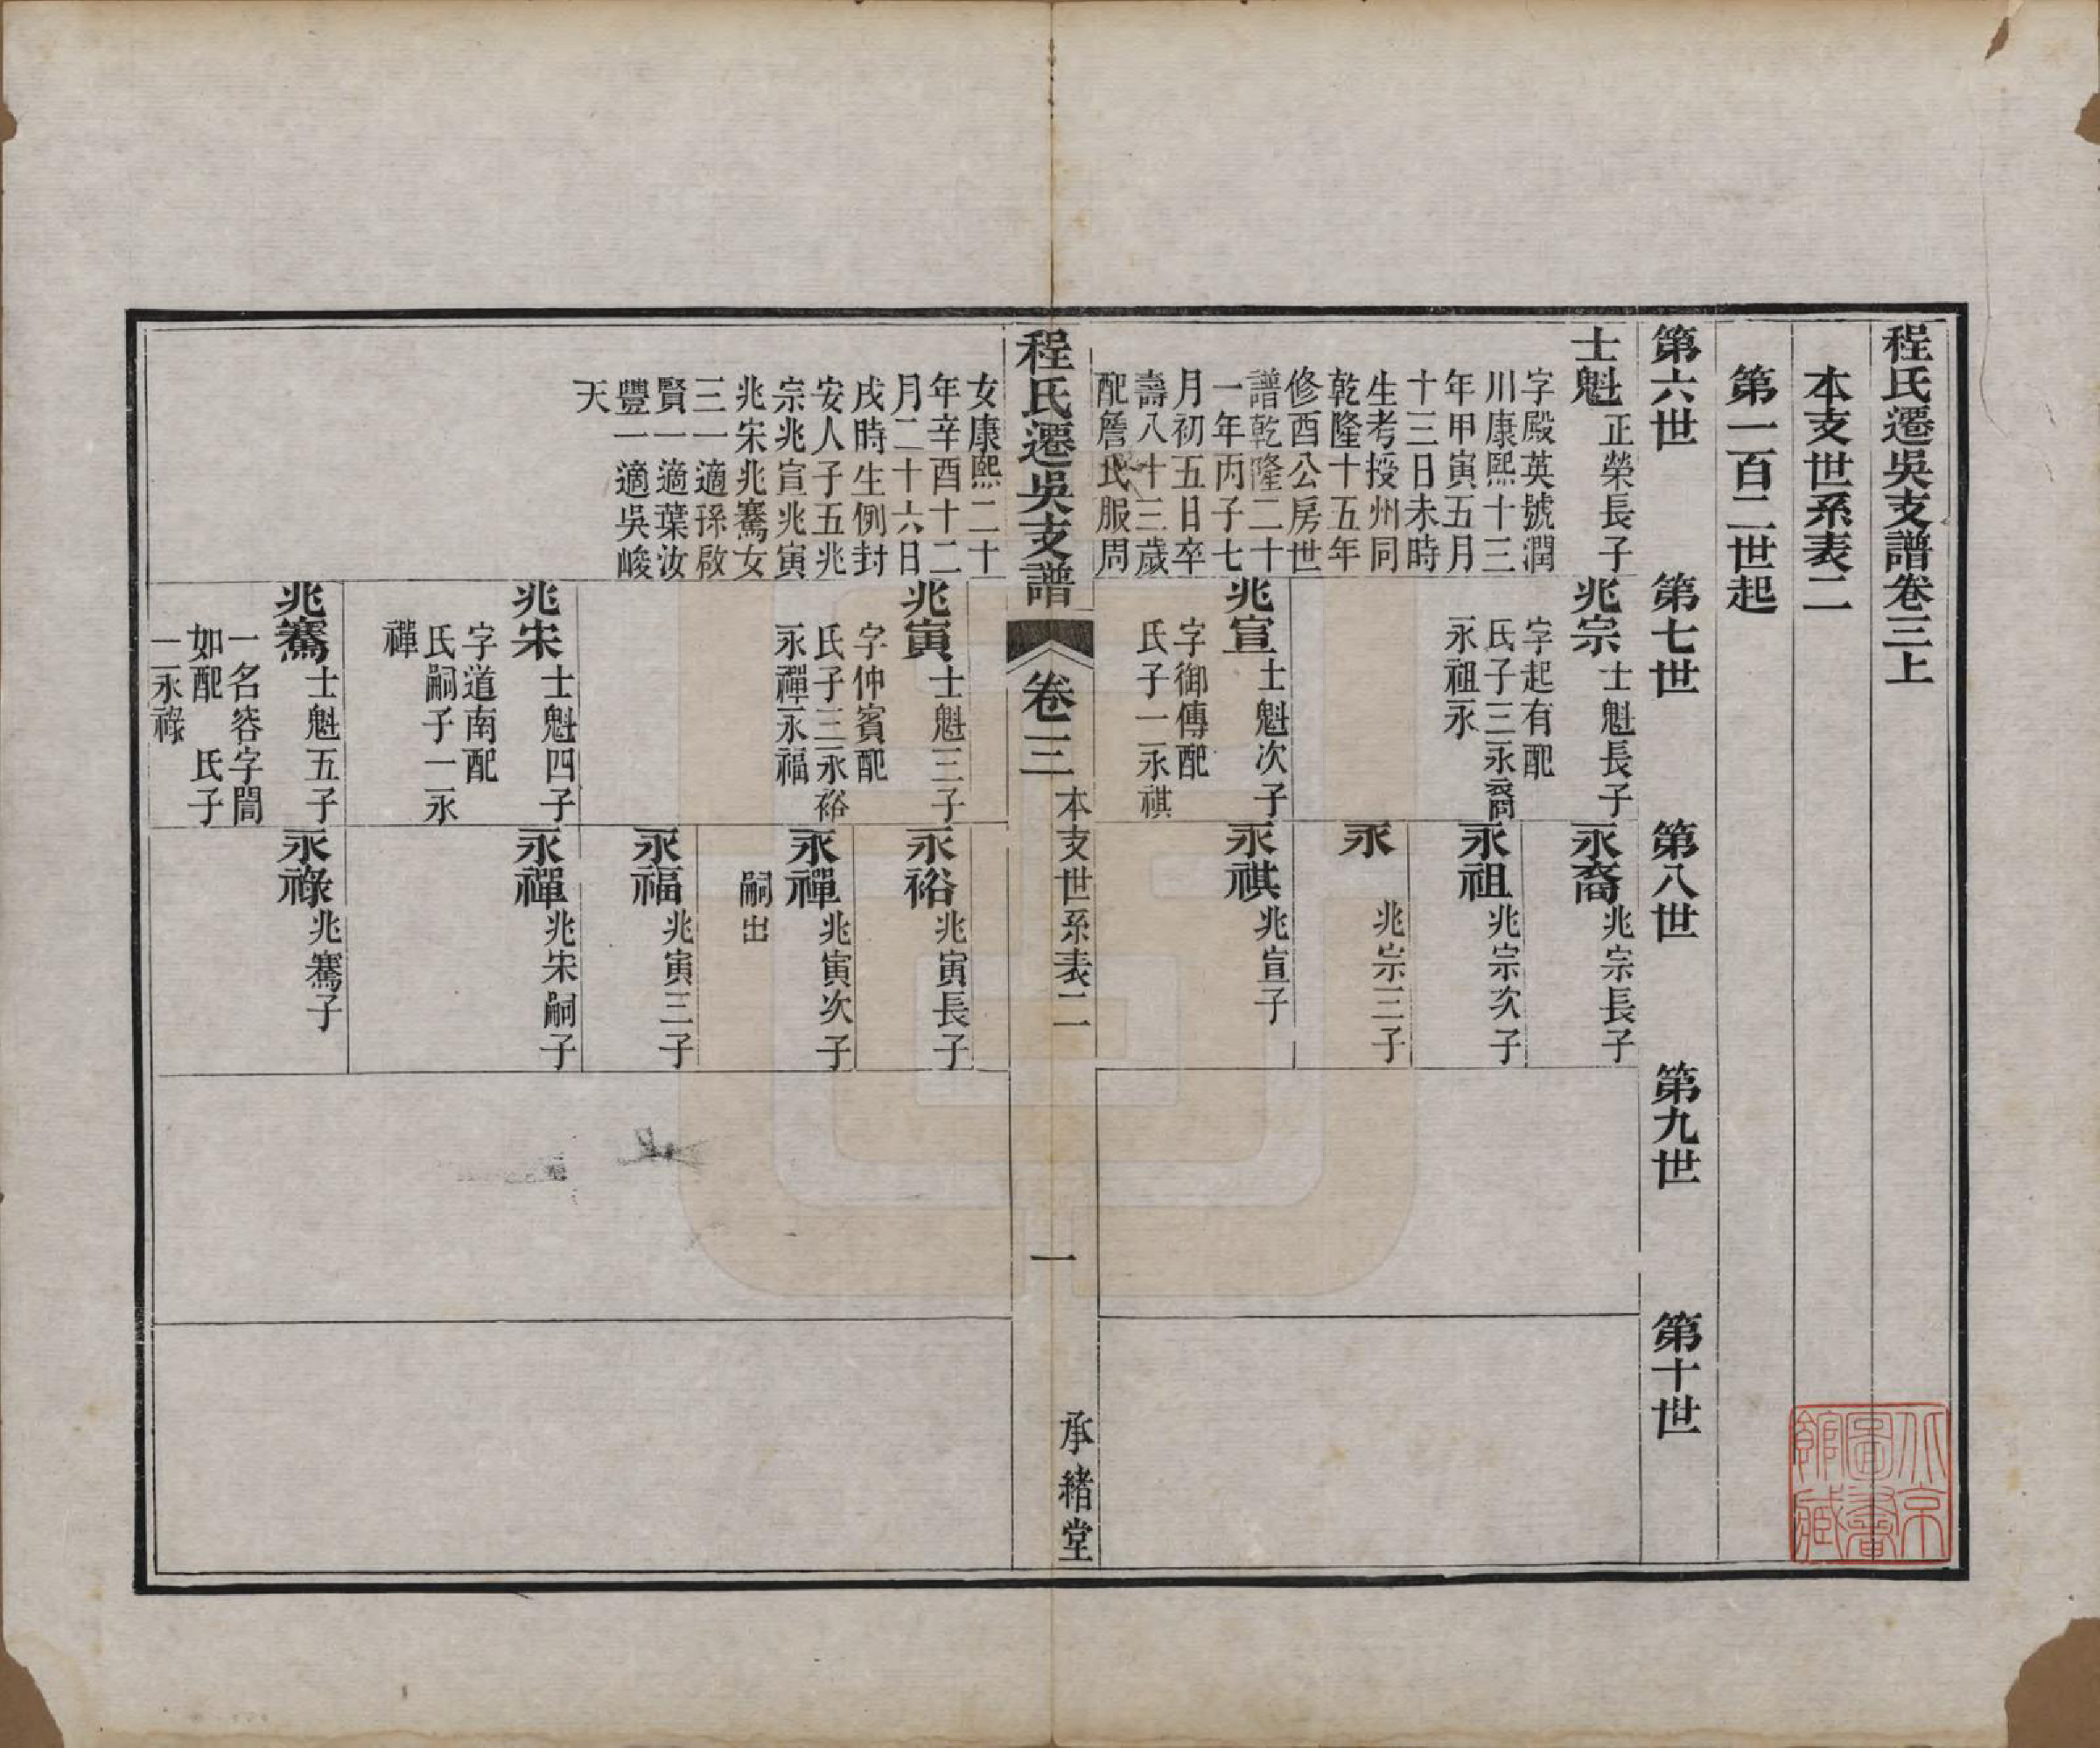 程氏遷吳支譜卷三上
本支世系表二
第一百二世起
第六世
第七世
第八世
第九世
第十世
士魁
正榮長子
字殿英號潤
川康熙十三
年甲寅五月
十三日未時
生考授州同
乾隆十五年
修酉公房世
譜乾隆二十
一年丙子七
月初五日卒
壽八十三歲
配詹氏服周
女康熙二十
年辛酉十二
月二十六日
戌時生例封
安人子五兆
宗兆宣兆寅
兆宋兆騫女
三一適孫啟
賢一適葉汝
豐一適吳峻
天
兆宗
士魁長子
字起有配
氏子三永裔
永祖永
兆宣
士魁次子
字御傳配
氏子一永祺
兆寅
士魁三子
字仲賓配
氏子三永裕
永禪永福
兆宋
士魁四子
字道南配
氏嗣子一永
禪
兆騫
士魁五子
一名容字誾
如配 氏子
一永祿
永裔
兆宗長子
永祖
兆宗次子
永
兆宗三子
永祺
兆宣子
永裕
兆寅長子
永禪
兆寅次子
嗣出
永福
兆寅三子
永禪
兆宋嗣子
永祿
兆騫子
程氏遷吳支譜
卷三
本支世系表二
一
承緒堂
北京
圖書
館藏